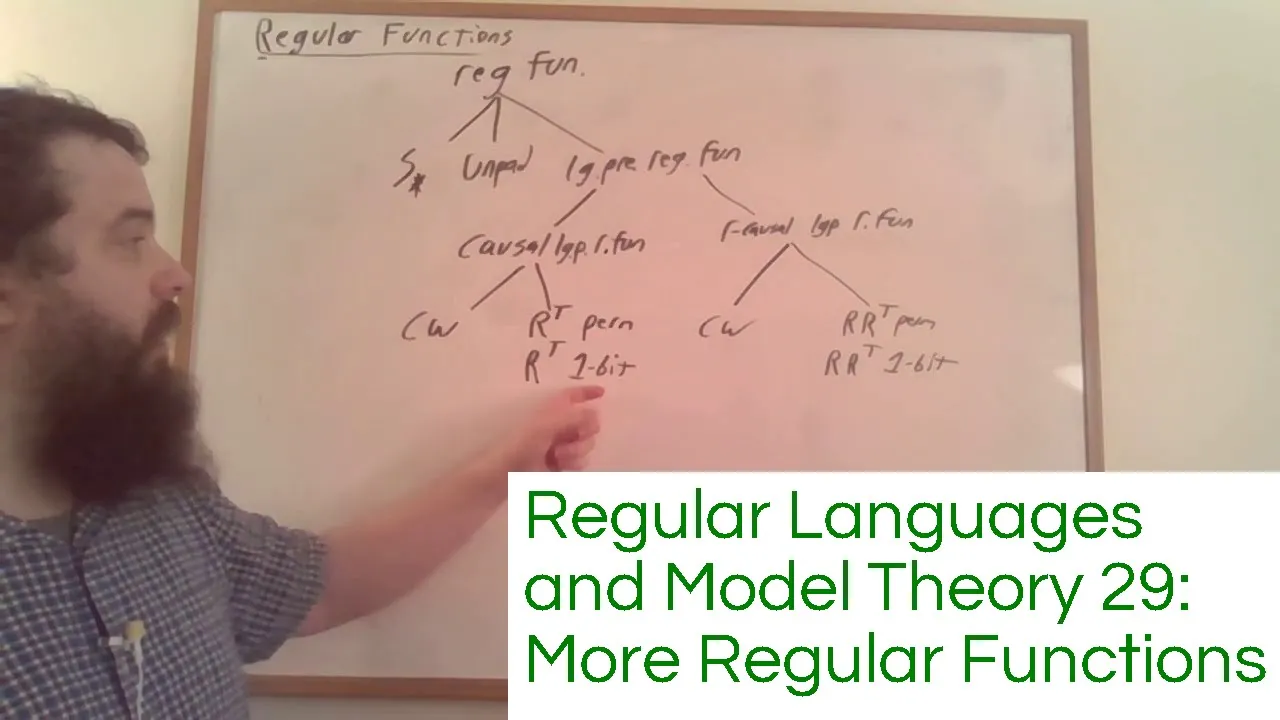 Regular Functions
reg fun.
S* Unpad lg.pre.reg. fun
Causal lg.p. r.fun r-causal lgp r.fun
CW R^T perm CW RR^T perm
R^T 1-bit RR^T 1-bit
Regular Languages
and Model Theory 29:
More Regular Functions